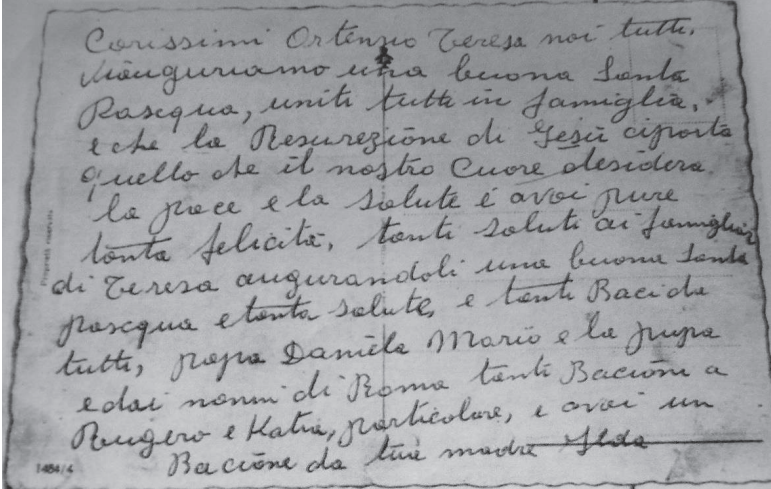 Carissimi Ortenzio Teresa noi tutti,
viauguriamo una buona Santa
Pasequa, uniti tutti in famiglia,
e che la Resurezione di Gesù ciporta
quello che il nostro Cuore desidera
la pace e la salute é avoi pure
tanta felicità, tanti saluti ai famigliari
di Teresa augurandoli una buona Santa
pasequa e tanta salute, e tanti Baci da
tutti, papa Daniela Mario e la pupa
e dai nonni di Roma tanti Bacioni a
Rugero e Katia, particolare, e avoi un
Bacione da tua madre Ilda
1484/4